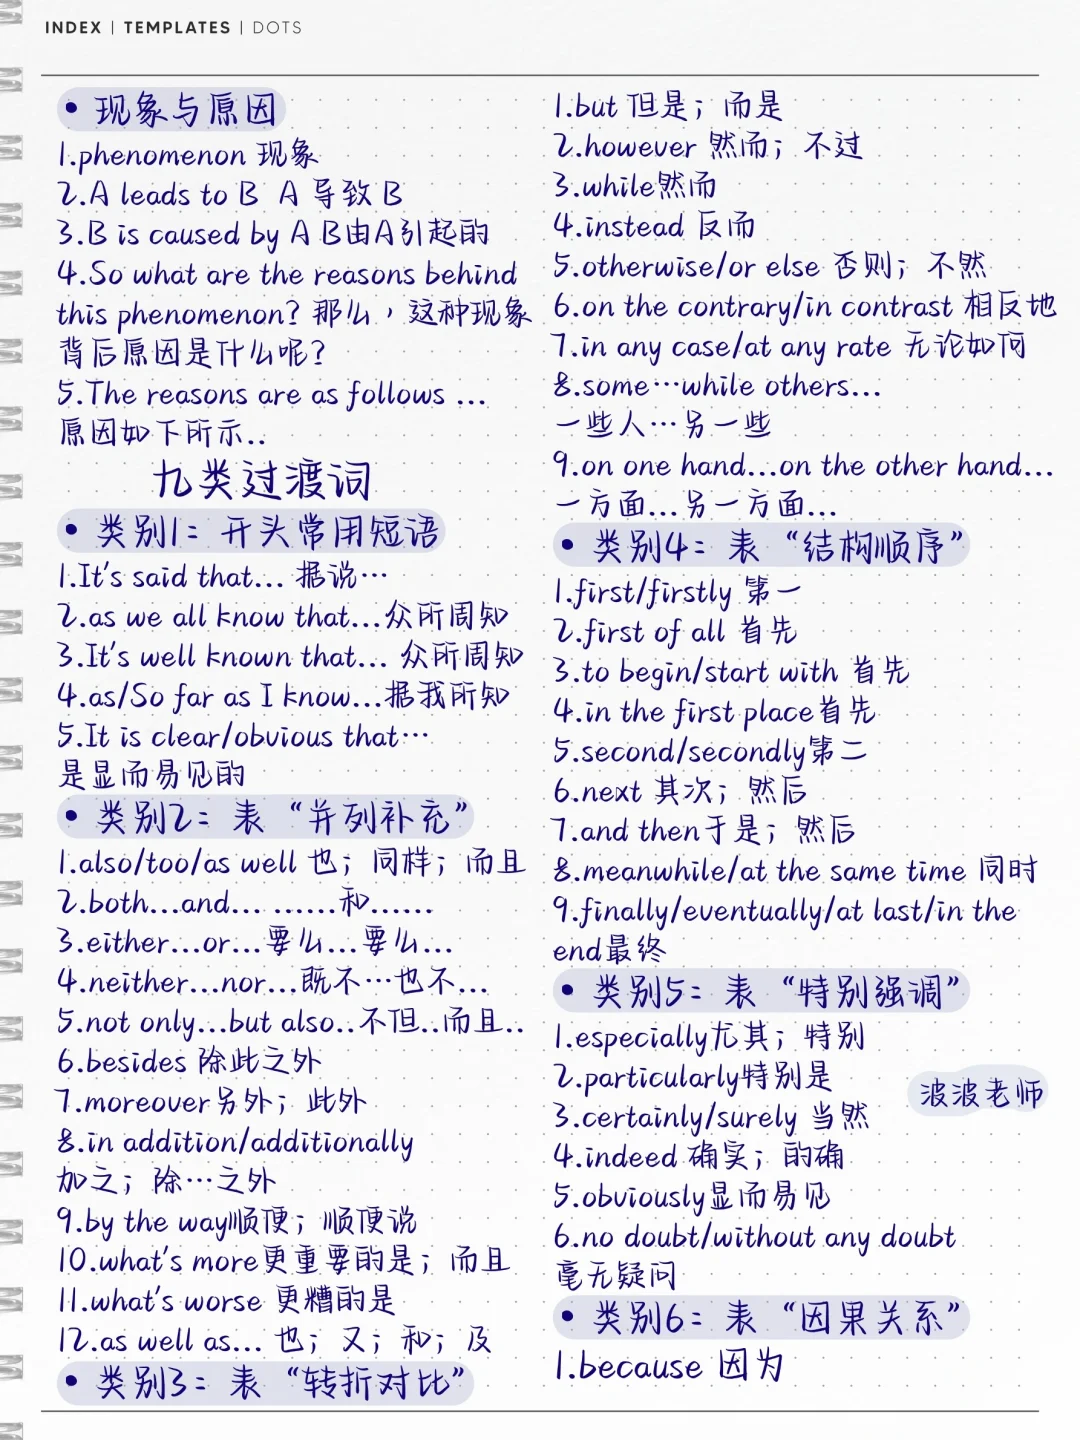 INDEX | TEMPLATES | DOTS
• 现象与原因
1.phenomenon 现象
2.A leads to B A 导致 B
3.B is caused by A B由A引起的
4.So what are the reasons behind
this phenomenon? 那么，这种现象
背后原因是什么呢？
5.The reasons are as follows ...
原因如下所示..
九类过渡词
• 类别1：开头常用短语
1.It's said that... 据说…
2.as we all know that...众所周知
3.It's well known that... 众所周知
4.as/So far as I know...据我所知
5.It is clear/obvious that…
是显而易见的
• 类别2：表“并列补充”
1.also/too/as well 也；同样；而且
2.both...and... ......和......
3.either...or...要么...要么...
4.neither...nor...既不…也不...
5.not only...but also..不但..而且..
6.besides 除此之外
7.moreover另外；此外
8.in addition/additionally
加之；除…之外
9.by the way顺便；顺便说
10.what's more更重要的是；而且
11.what's worse 更糟的是
12.as well as... 也；又；和；及
• 类别3：表“转折对比”
1.but 但是；而是
2.however 然而；不过
3.while然而
4.instead 反而
5.otherwise/or else 否则；不然
6.on the contrary/in contrast 相反地
7.in any case/at any rate 无论如何
8.some…while others...
一些人…另一些
9.on one hand...on the other hand...
一方面...另一方面...
• 类别4：表“结构顺序”
1.first/firstly 第一
2.first of all 首先
3.to begin/start with 首先
4.in the first place首先
5.second/secondly第二
6.next 其次；然后
7.and then于是；然后
8.meanwhile/at the same time 同时
9.finally/eventually/at last/in the
end最终
• 类别5：表“特别强调”
1.especially尤其；特别
2.particularly特别是
波波老师
3.certainly/surely 当然
4.indeed 确实；的确
5.obviously显而易见
6.no doubt/without any doubt
毫无疑问
• 类别6：表“因果关系”
1.because 因为